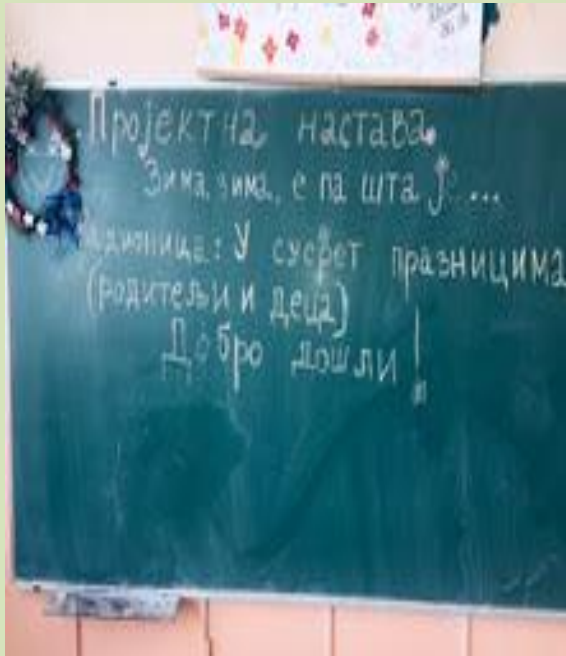 Пројектна настава
Зима, зима, е па шта ј...
адионица: У сусрет празницима
(родитељи и деца)
Добро дошли!